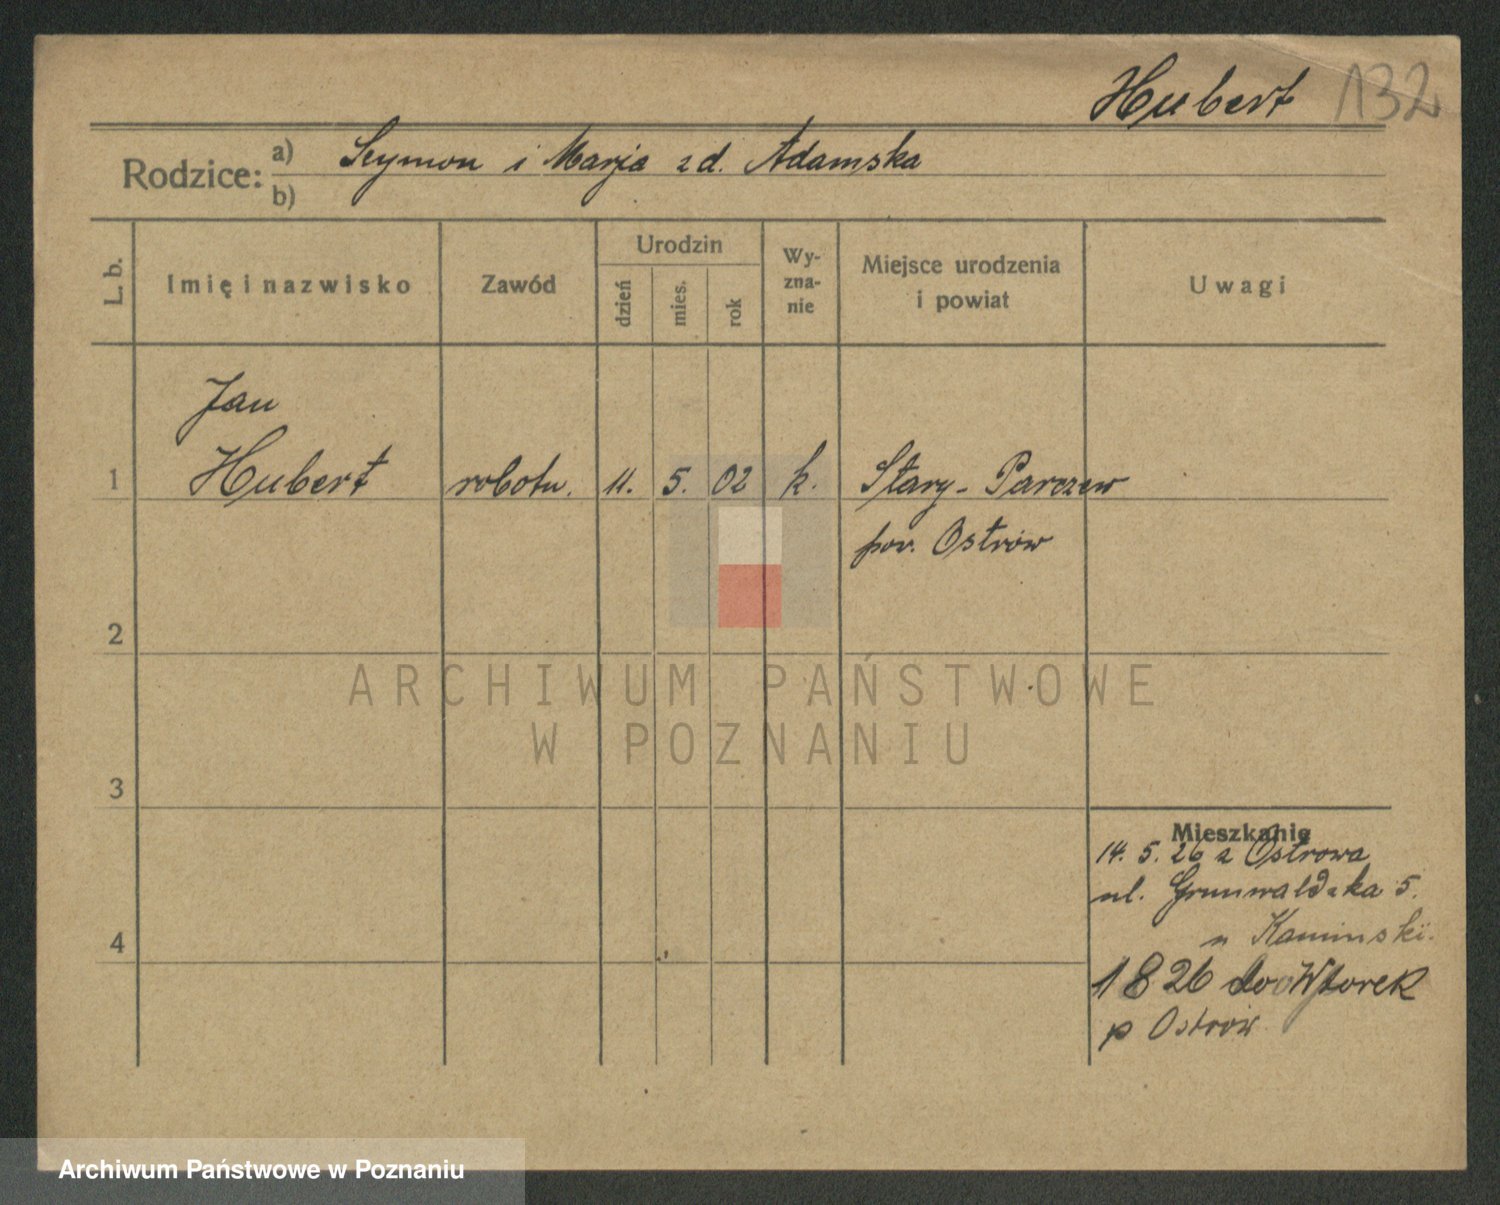 Hubert 132
Rodzice: a) Szymon i Marja z d. Adamska
b)
L. b.
Imię i nazwisko
Zawód
Urodzin
dzień
mies.
rok
Wy-
zna-
nie
Miejsce urodzenia
i powiat
Uwagi
Jan
1 Hubert robotn. 11. 5. 02 k. Stary-Parczew
pow. Ostrów
2
ARCHIWUM PAŃSTWOWE
W POZNANIU
3
Mieszkanie
14. 5. 26 z Ostrowa
ul. Grunwaldzka 5.
4
Kaminski.
1 8 26 do Wtorek
p Ostrów
Archiwum Państwowe w Poznaniu